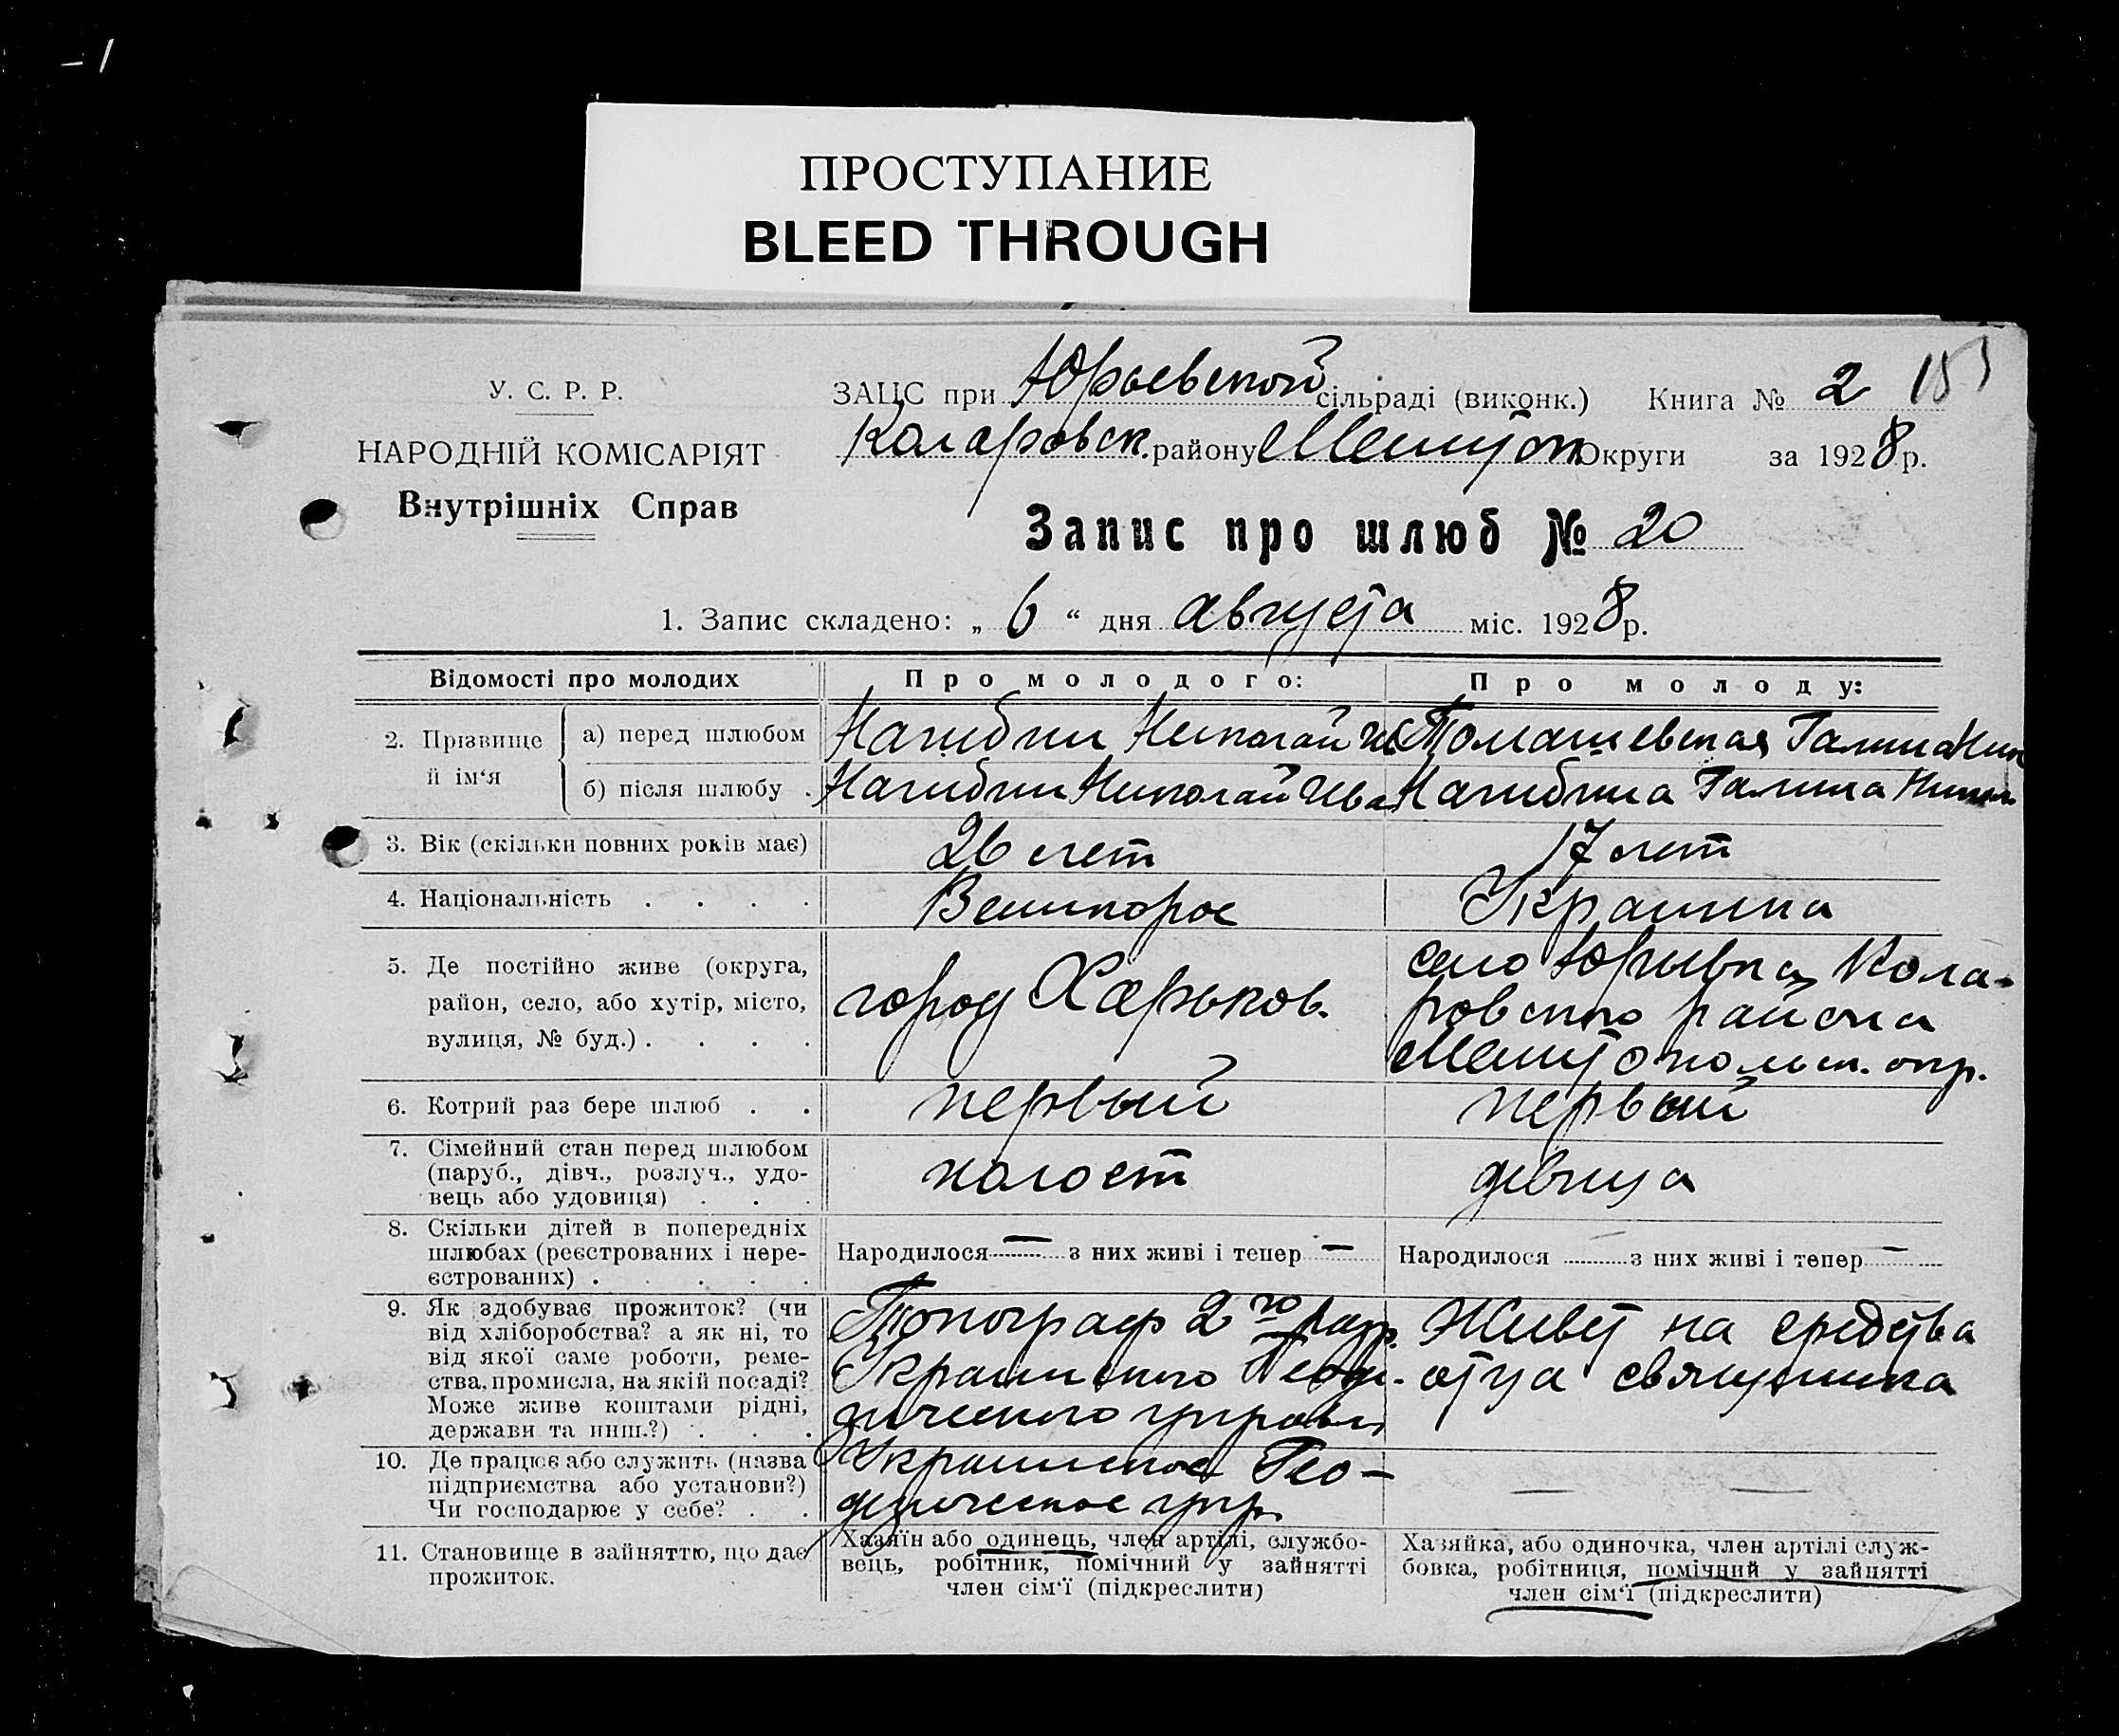 – 1
ПРОСТУПАНИЕ
BLEED THROUGH
У. С. Р. Р.
НАРОДНІЙ КОМІСАРІЯТ
Внутрішніх Справ
ЗАЦС при Юрьевской сільраді (виконк.) Книга № 2
Коларовск. району Мелитоп Округи за 1928 р.
Запис про шлюб № 20
1. Запис складено: „ 6 “ дня августа міс. 1928 р.
Відомості про молодих
Про молодого:
Про молоду:
2. Прізвище й ім‘я
а) перед шлюбом
Нагибин Николай Ив
Томашевская Галина Ник
б) після шлюбу .
Нагибин Николай Ива
Нагибина Галина Никол
3. Вік (скільки повних років має)
26 лет
17 лет
4. Національність . . . .
Великорос
Украинка
5. Де постійно живе (округа,
район, село, або хутір, місто,
вулиця, № буд.) . . . .
город Харьков.
село Юрьевка, Кола-
ровского района
Мелитопольск. окр.
6. Котрий раз бере шлюб . .
первый
первый
7. Сімейний стан перед шлюбом
(паруб., дівч., розлуч., удо-
вець або удовиця) . . .
холост
девица
8. Скільки дітей в попередніх
шлюбах (реєстрованих і нере-
єстрованих) . . . . .
Народилося — з них живі і тепер —
Народилося з них живі і тепер —
9. Як здобуває прожиток? (чи
від хліборобства? а як ні, то
від якої саме роботи, реме-
ства, промисла, на якій посаді?
Може живе коштами рідні,
держави та инш.?) . . .
Топограф 2го разр.
Украинского Геоде-
зического управл
Живет на средства
отца священника
10. Де працює або служить (назва
підприємства або установи?)
Чи господарює у себе? . .
Украинское Гео-
дезическое упр.
— —
11. Становище в зайняттю, що дає
прожиток.
Хазяїн або одинець, член артілі, службо-
вець, робітник, помічний у зайнятті
член сім‘ї (підкреслити)
Хазяйка, або одиночка, член артілі служ-
бовка, робітниця, помічний у зайнятті
член сім‘ї (підкреслити)